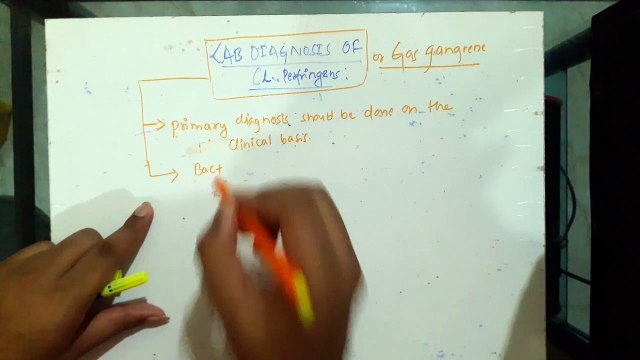 LAB DIAGNOSIS OF
Cl. Perfringens:
or Gas gangrene
primary diagnosis should be done on the
clinical basis.
Bact